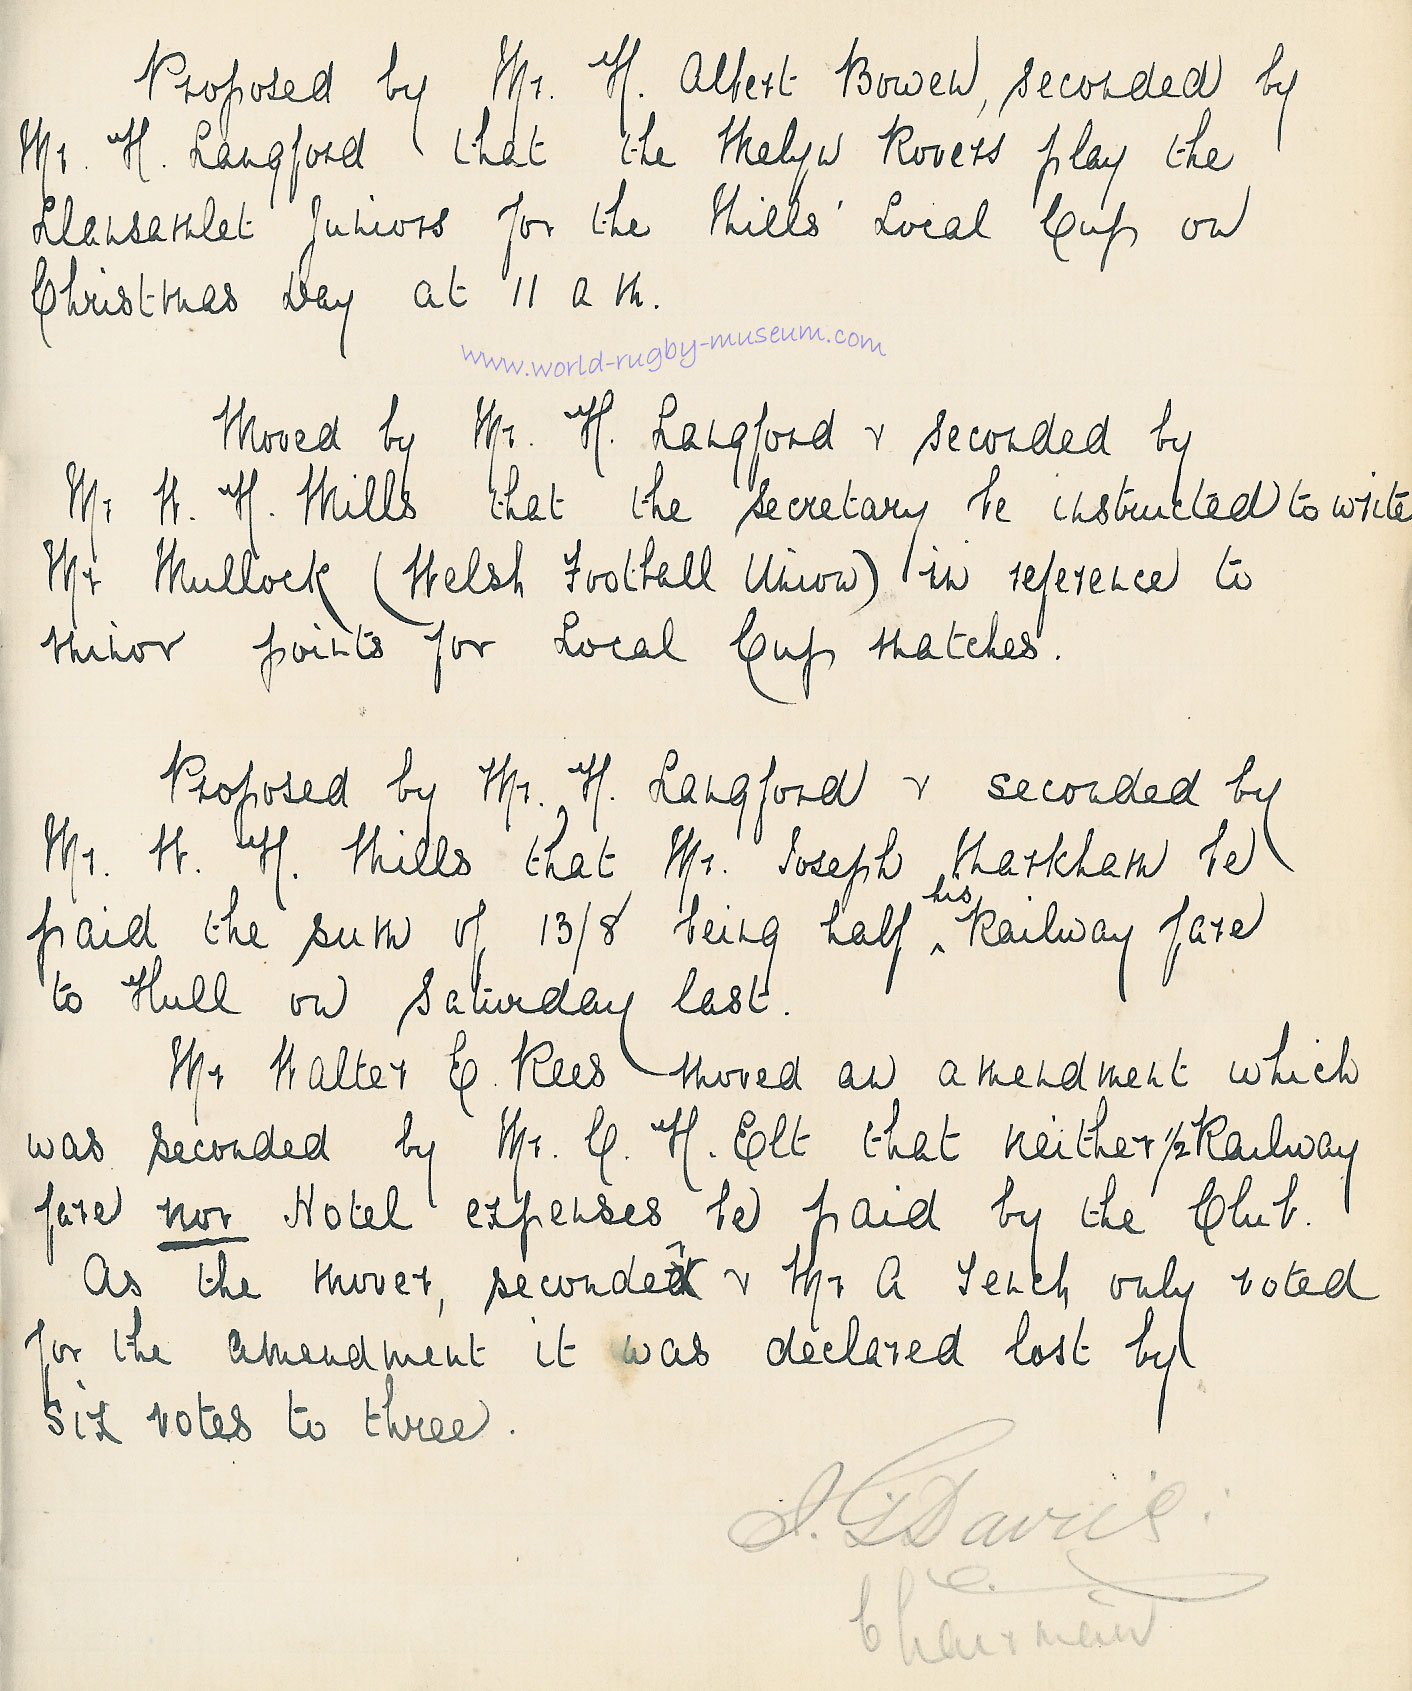 Proposed by Mr. H. Albert Bowen, seconded by
Mr. H. Langford that the Melyn Rovers play the
Llansamlet Juniors for the Mills' Local Cup on
Christmas Day at 11 a m.
www.world-rugby-museum.com
Moved by Mr. H. Langford & seconded by
Mr W. H. Mills that the secretary be instructed to write
Mr Mullock (Welsh Football Union) in reference to
minor points for Local Cup matches.
Proposed by Mr. H. Langford & seconded by
Mr. W. H. Mills that Mr. Joseph Markham be
paid the sum of 13/8 being half his Railway fare
to Hull on Saturday last.
Mr Walter E. Rees moved an amendment which
was seconded by Mr. C. H. Elt that neither 1/2 Railway
fare nor Hotel expenses be paid by the Club.
As the mover, seconder & Mr A Tench only voted
for the amendment it was declared lost by
six votes to three.
J. G. Davies.
Chairman